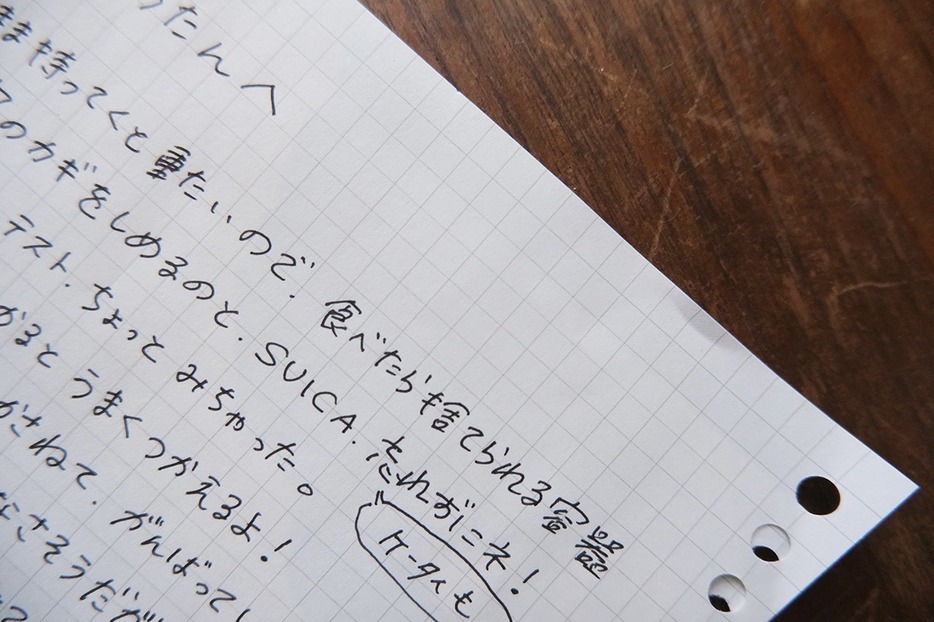 たんへ
まま持ってくと重たいので、食べたら捨てられる容器
のカギをしめるのと、SUICA、忘れずにネ!
ケータイも
テスト、ちょっとみちゃった。
かると うまくつかえるよ!
かさねて、がんばってい
なさそうだが